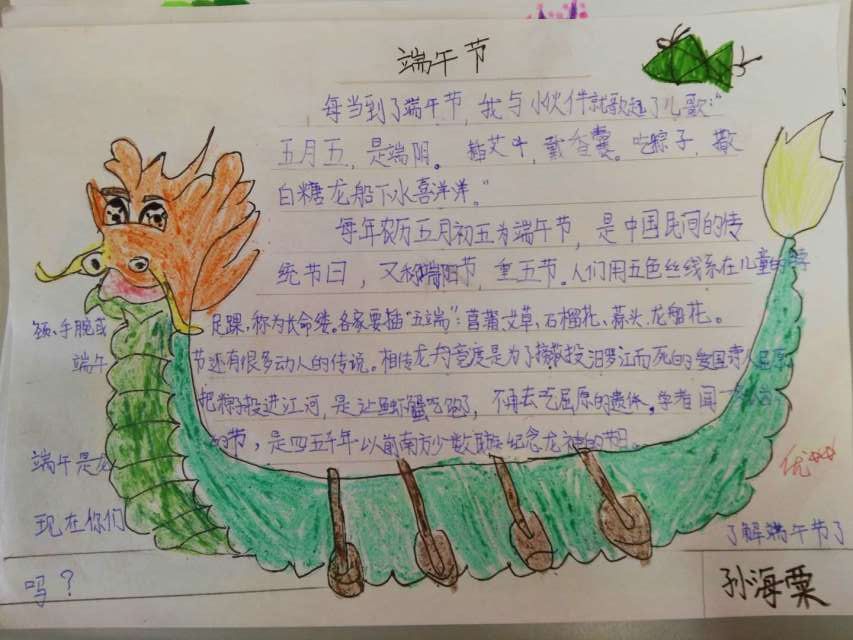 端午节
每当到了端午节，我与小伙伴就歌起了儿歌："
五月五，是端阳。插艾叶，戴香囊。吃粽子，撒
白糖龙船下水喜洋洋。"
每年农历五月初五为端午节，是中国民间的传
统节日，又称端阳节，重五节。人们用五色丝线系在儿童的
颈、手腕或足踝，称为长命缕。各家要插"五端"：菖蒲、艾草、石榴花、蒜头、龙船花。
端午节还有很多动人的传说。相传龙舟竞度是为了捞救投汨罗江而死的爱国诗人屈原
把粽子投进江河，是让鱼虾蟹吃饱了，不再去吃屈原的遗体。学者闻一
端午是龙的节，是四五千年以前南方少数民族纪念龙神的节日。
现在你们了解端午节了
吗？
优
孙海粟